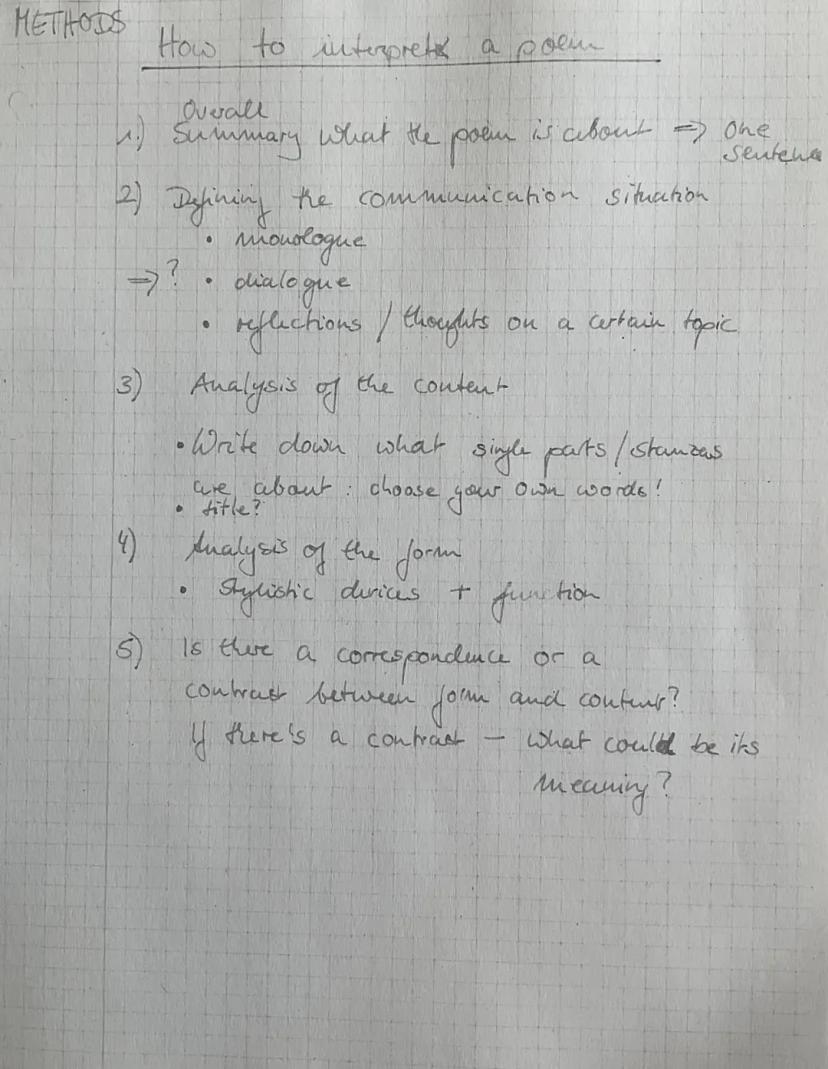 METHODS
How to interpret a poem
Overall
1.) Summary what the poem is about => one
sentence
2) Defining the communication situation
• monologue
=> ? • dialogue
• reflections / thoughts on a certain topic
3) Analysis of the content
• Write down what single parts / stanzas
are about : choose your own words!
• title?
4) Analysis of the form
• Stylistic devices + function
5) Is there a correspondence or a
contrast between form and content?
If there's a contrast – what could be its
meaning?